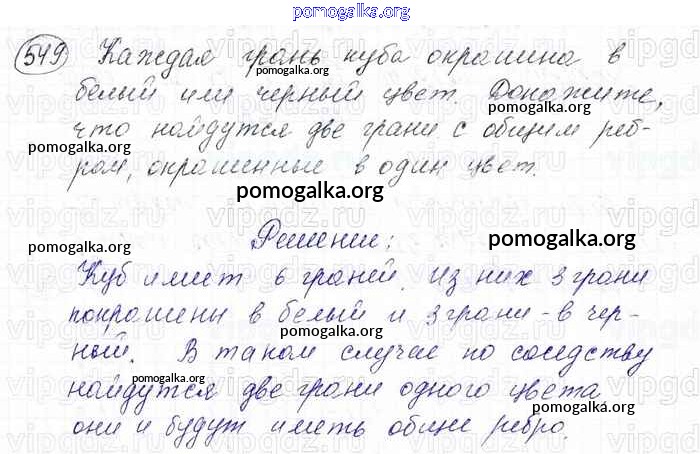 pomogalka.org
549 Каждая грань куба окрашена в
pomogalka.org
белый или черный цвет. Докажите,
pomogalka.org
что найдутся две грани с общим реб-
pomogalka.org
ром, окрашенные в один цвет.
pomogalka.org
Решение:
pomogalka.org
pomogalka.org
Куб имеет 6 граней. Из них 3 грани
pomogalka.org
покрашены в белый и 3 грани - в чер-
pomogalka.org
ный. В таком случае по соседству
pomogalka.org
найдутся две грани одного цвета
pomogalka.org
они и будут иметь общее ребро.